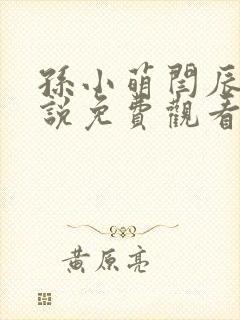 孫小萌閆辰
說免費觀看
黃原亮